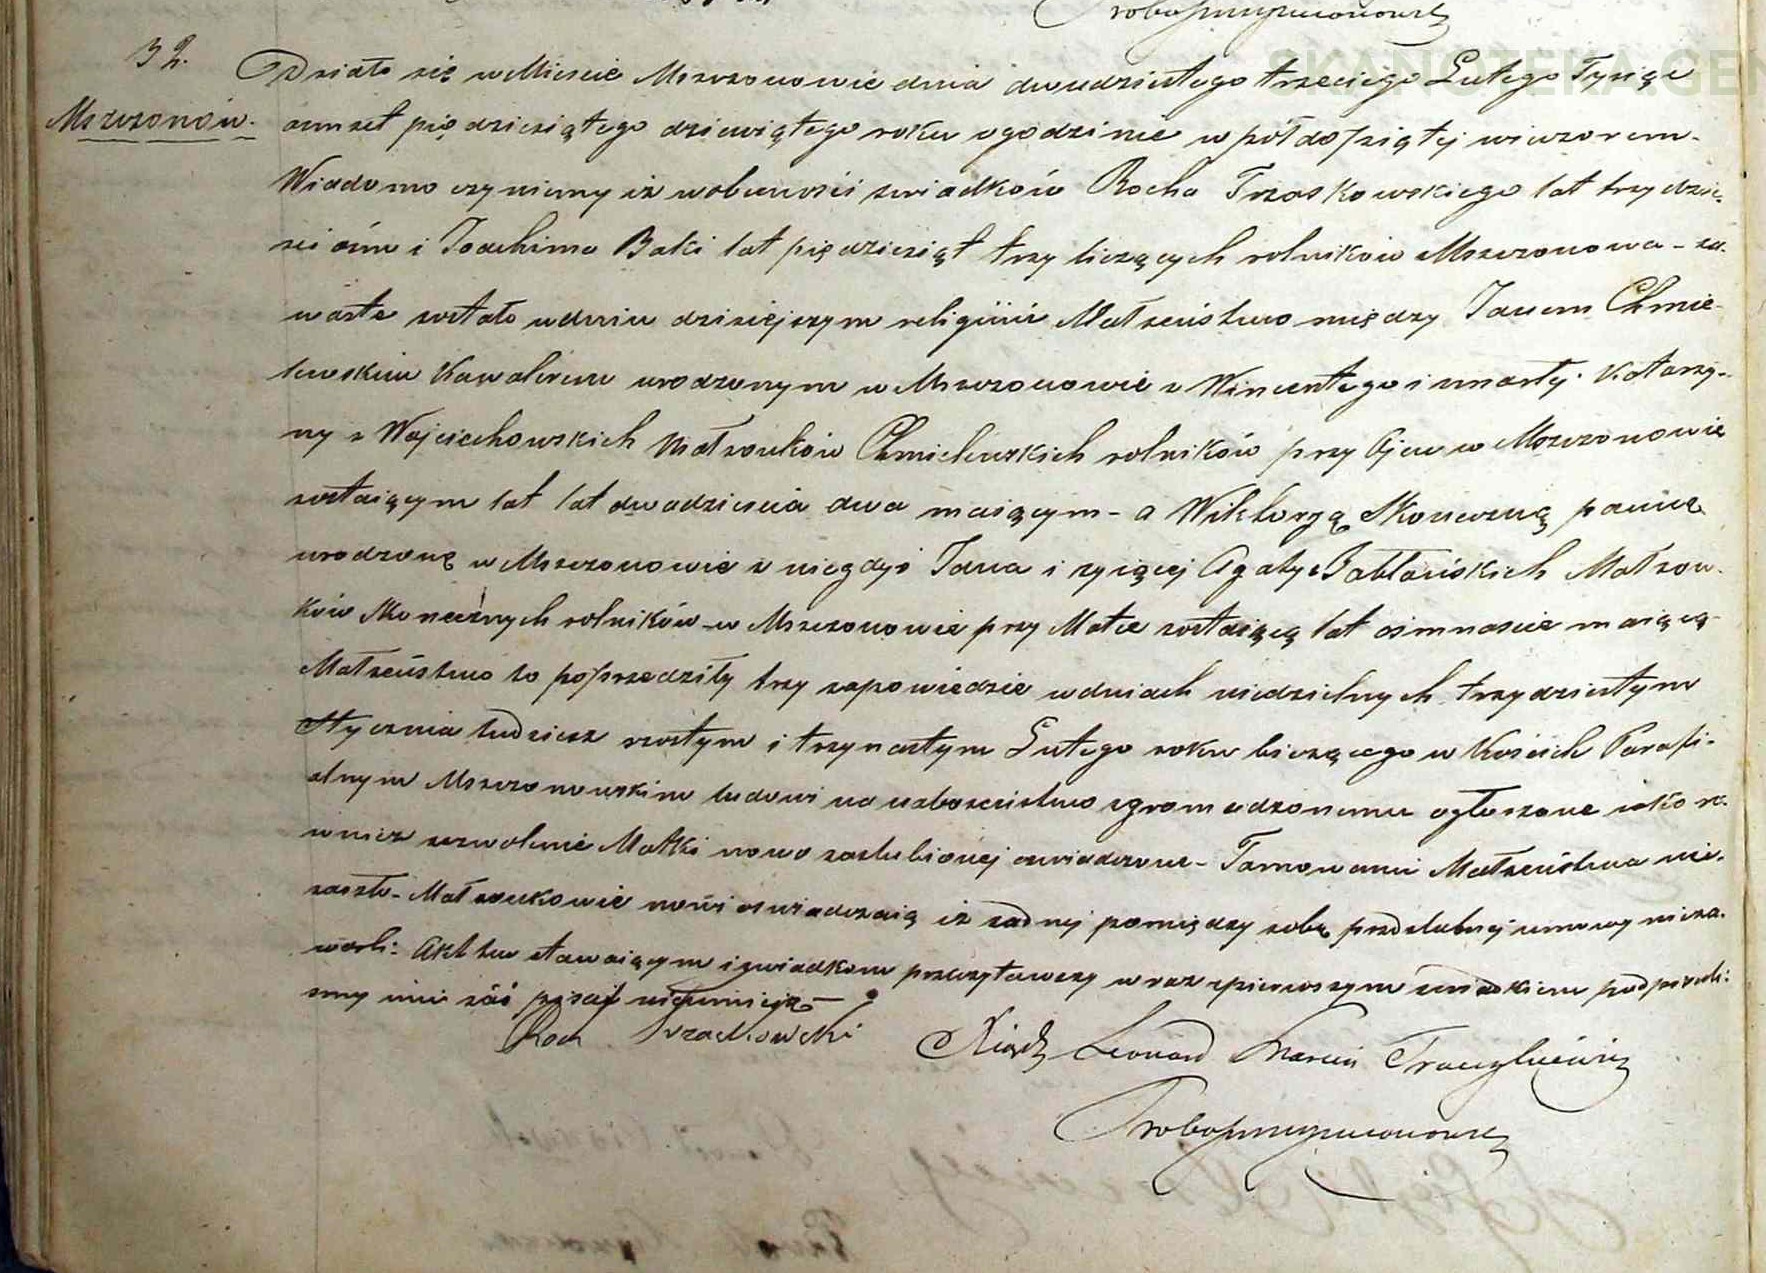 32.
Mszczonów.
Działo się w Mieście Mszczonowie dnia dwudziestego trzeciego Lutego Tysiąc
ośmset piędziesiątego dziewiątego roku o godzinie w pół do piątej wieczorem.
Wiadomo czyniemy iż w obecności świadków Rocha Trzaskowskiego lat trzydzie-
ści ośm i Joachima Bąki lat piędziesiąt trzy liczących rolników z Mszczonowa - za-
warte zostało w dniu dzisiejszym religijne Małżeństwo między Janem Chmie-
lewskim Kawalerem urodzonym w Mszczonowie z Wincentego i zmarłej Katarzy-
ny z Wojciechowskich Małżonków Chmielewskich rolników przy Ojcu w Mszczonowie
zostaiącym lat lat dwadzieścia dwa maiącym - a Wiktorją Skoneczną panną
urodzoną w Mszczonowie z niegdyś Jana i żyiącej Agaty z Jabłońskich Małżon-
ków Skonecznych rolników w Mszczonowie przy Matce zostaiącą lat ośmnaście maiącą -
Małżeństwo to poprzedziły trzy zapowiedzie w dniach niedzielnych trzydziestym
Stycznia tudzież szóstym i trzynastym Lutego roku bieżącego w Kościele Parafi-
alnym Mszczonowskim ludowi na nabożeństwo zgromadzonemu ogłoszone iako ró-
wnież zezwolenie Matki nowo zaślubionej oświadczone - Tamowanie Małżeństwa nie-
zaszło - Małżonkowie nowi oświadczaią iż żadnej pomiędzy sobą przedślubnej umowy nieza-
warli: Akt ten stawaiącym i świadkom przeczytawszy wraz z pierwszym świadkiem podpisaliś-
my inni zaś pisać nieumieią -
Roch Trzaskowski Xiądz Leonard Marcin Traczylewicz
Prob